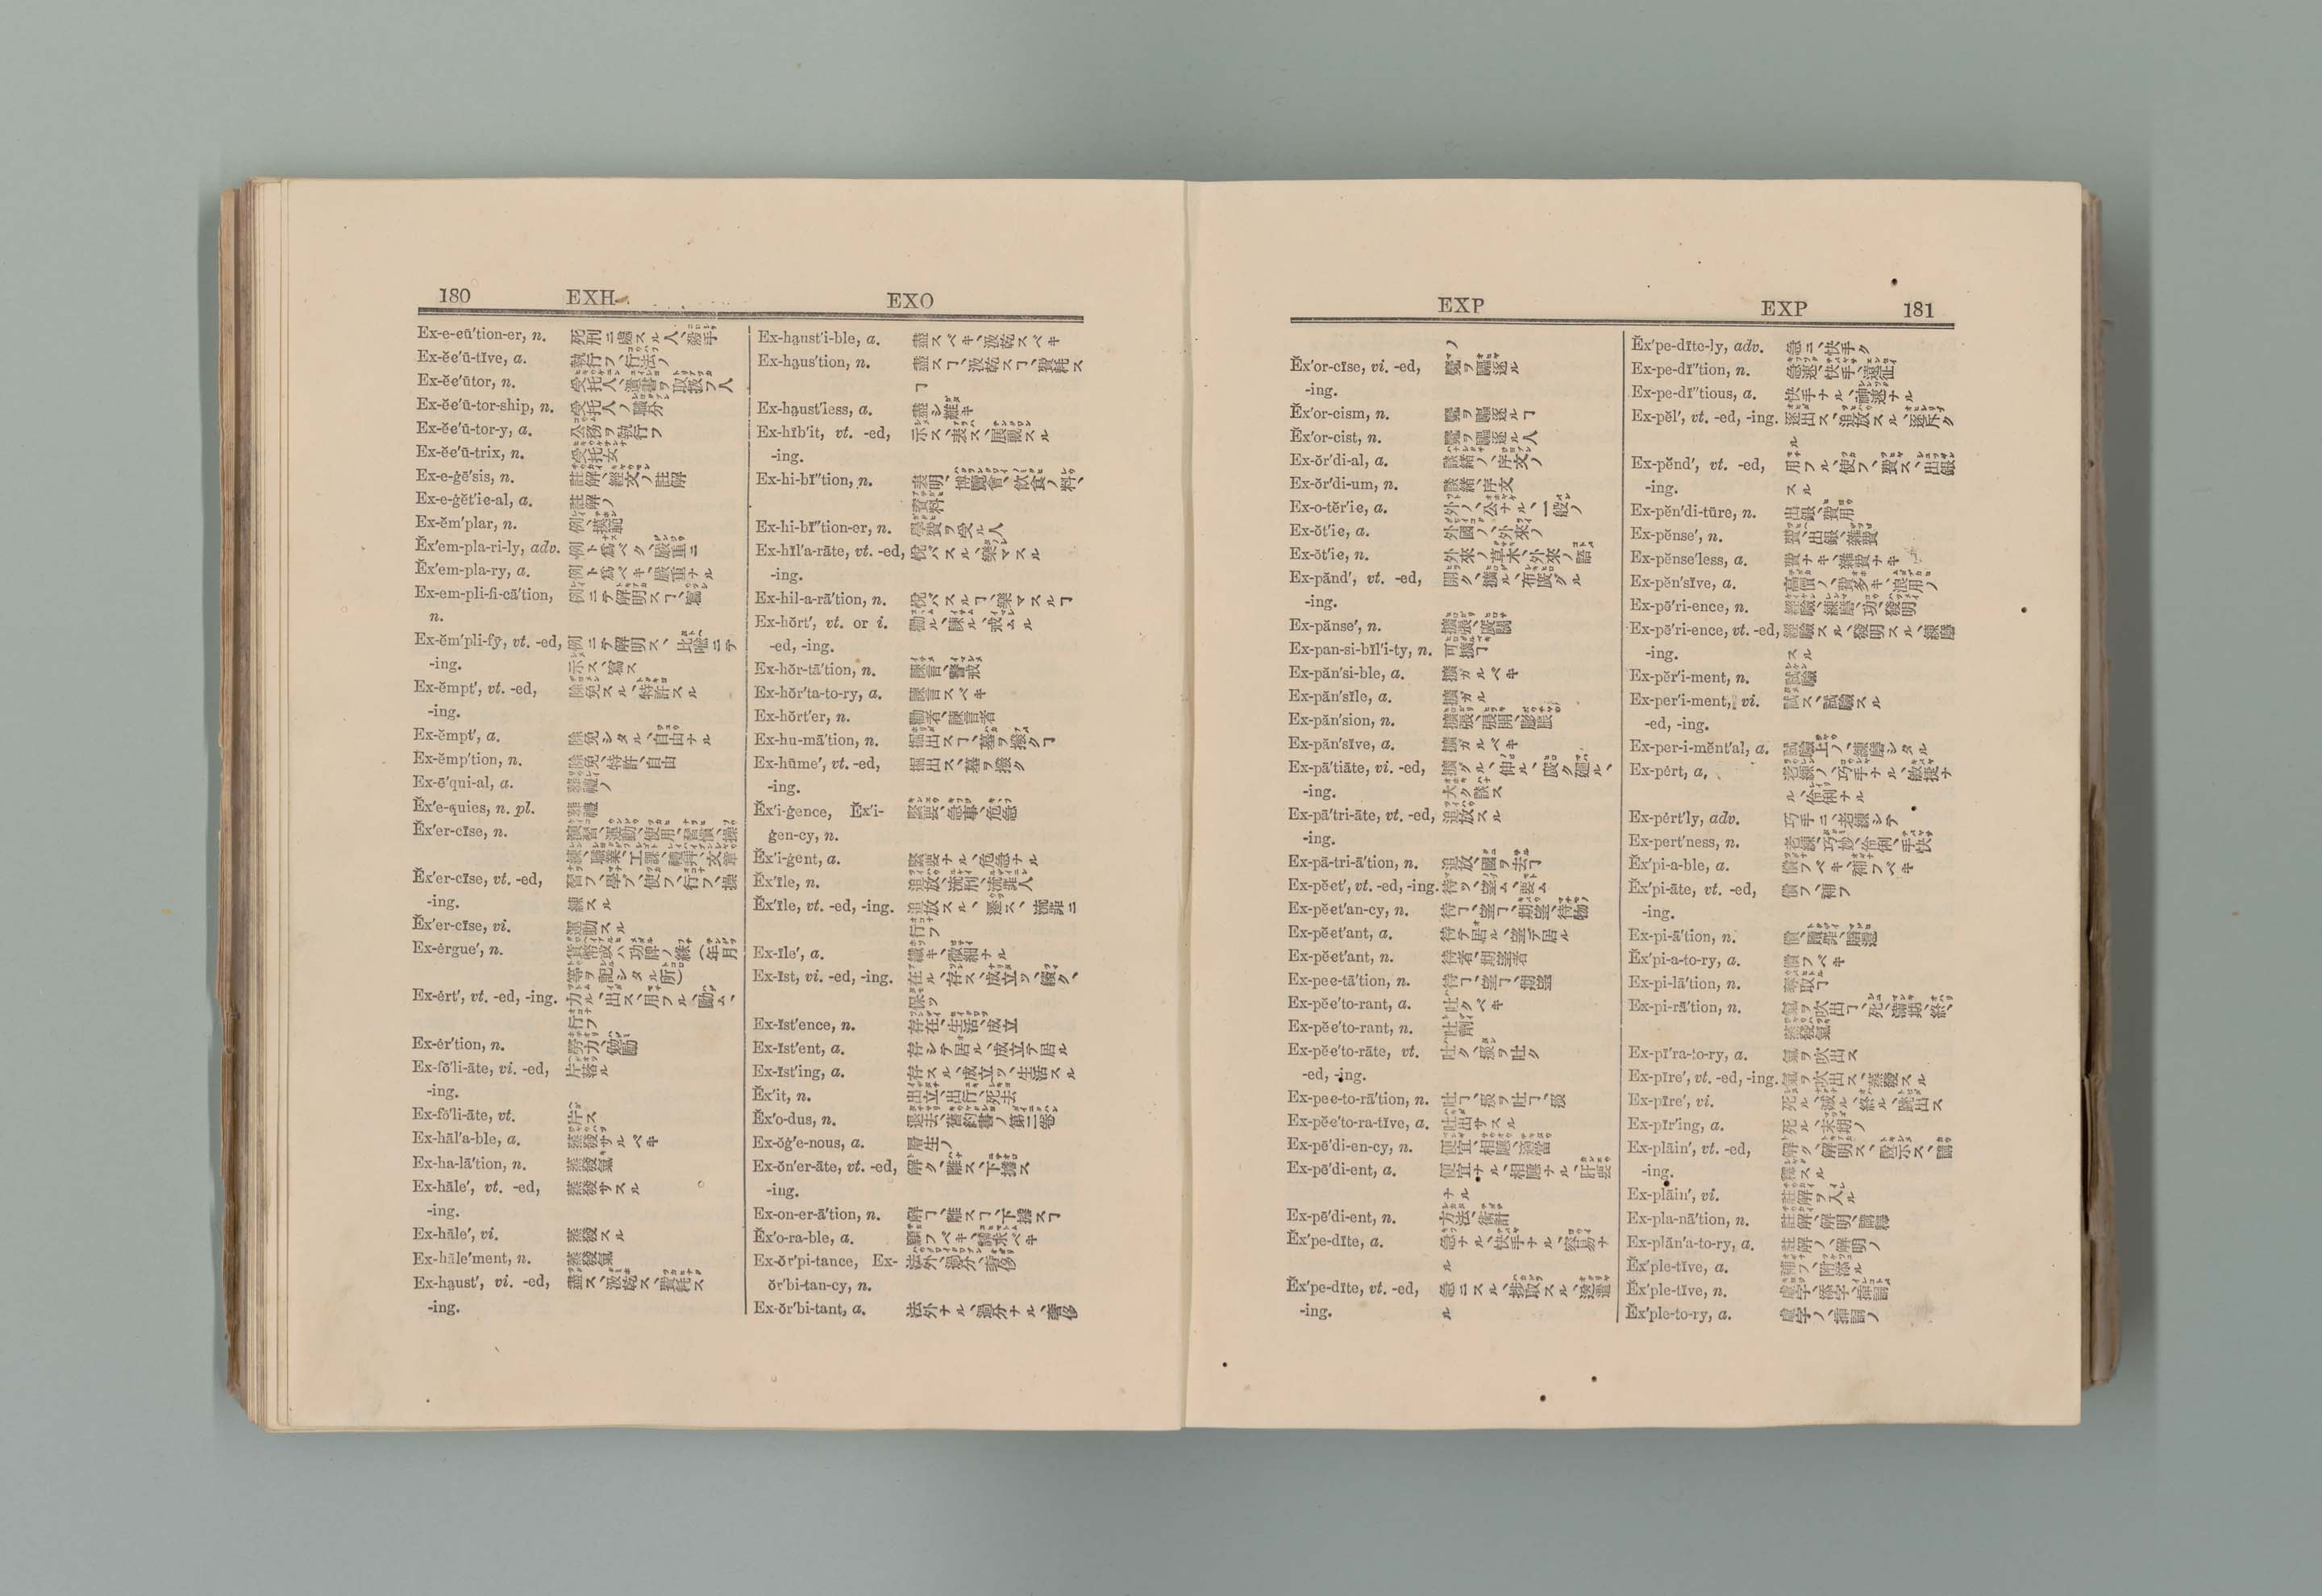 180 EXH EXO
Ex-e-eū′tion-er, n. 死刑ニ處スル人、
Ex-ĕe′ū-tĭve, a. 執行フ、行法ノ
Ex-ĕe′ūtor, n. 受托人、遺書ヲ取扱フ人
Ex-ĕe′ū-tor-ship, n. 受托人ノ職分
Ex-ĕe′ū-tor-y, a. 公務ヲ執行フ
Ex-ĕe′ū-trix, n. 受托女
Ex-e-ġē′sis, n. 註解、經文ノ註解
Ex-e-ġĕt′ie-al, a. 註解ノ
Ex-ĕm′plar, n. 例、摸範
Ĕx′em-pla-ri-ly, adv. 例ト爲ベク、嚴重ニ
Ĕx′em-pla-ry, a. 例ト爲ベキ、嚴重ナル
Ex-em-pli-fi-cā′tion, 例ニテ解明スヿ、寫
n.
Ex-ĕm′pli-fȳ, vt. -ed, 例ニテ解明ス、比喩ニテ
-ing. 示ス、寫ス
Ex-ĕmpt′, vt. -ed, 除免スル、特許スル
-ing.
Ex-ĕmpt′, a. 除免シタル、自由ナル
Ex-ĕmp′tion, n. 除免、特許、自由
Ex-ē′qui-al, a. 葬禮ノ
Ĕx′e-quies, n. pl. 葬禮
Ĕx′er-cīse, n. 演習、運動、使用、習慣、操
練、職業、工課、禮拜、文章
Ĕx′er-cīse, vt. -ed, 習フ、學ブ、使フ、行フ、操
-ing. 練スル
Ĕx′er-cīse, vi. 運動スル
Ex-ẽrgue′, n. 貨幣或ハ功牌ノ緣(年月
等ヲ記シタル所)
Ex-ẽrt′, vt. -ed, -ing. 力ル、出ス、用フル、勵ム、
行フ
Ex-ẽr′tion, n. 勞力、勉勵
Ex-fō′li-āte, vi. -ed, 片落ル
-ing.
Ex-fō′li-āte, vt. 片ス
Ex-hāl′a-ble, a. 蒸發サルベキ
Ex-ha-lā′tion, n. 蒸發氣
Ex-hāle′, vt. -ed, 蒸發サスル
-ing.
Ex-hāle′, vi. 蒸發スル
Ex-hāle′ment, n. 蒸發氣
Ex-ha̤ust′, vi. -ed, 盡ス、汲乾ス、費耗ス
-ing.
Ex-ha̤ust′i-ble, a. 盡スベキ、汲乾スベキ
Ex-ha̤us′tion, n. 盡スヿ、汲乾スヿ、費耗ス
ヿ
Ex-ha̤ust′less, a. 盡シ難キ
Ex-hĭb′it, vt. -ed, 示ス、表ス、展觀スル
-ing.
Ex-hi-bĭ″tion, n. 表明、博覽會、飲食ノ料、
資料
Ex-hi-bĭ″tion-er, n. 學費ヲ受ル人
Ex-hĭl′a-rāte, vt. -ed, 悅バスル、樂マスル
-ing.
Ex-hil-a-rā′tion, n. 悅バスルヿ、樂マスルヿ
Ex-hôrt′, vt. or i. 勸ル、諫ル、戒ムル
-ed, -ing.
Ex-hŏr-tā′tion, n. 諫言、警戒
Ex-hôr′ta-to-ry, a. 諫言スベキ
Ex-hôrt′er, n. 勸者、諫言者
Ex-hu-mā′tion, n. 掘出スヿ、墓ヲ撥クヿ
Ex-hūme′, vt. -ed, 掘出ス、墓ヲ撥ク
-ing.
Ĕx′i-ġence, Ĕx′i- 緊要、急事、危急
ġen-cy, n.
Ĕx′i-ġent, a. 緊要ナル、危急ナル
Ĕx′īle, n. 追放、流刑、流罪人
Ĕx′īle, vt. -ed, -ing. 追放スル、逐ス、流罪ニ
行フ
Ex-īle′, a. 纖キ、微細ナル
Ex-ĭst, vi. -ed, -ing. 在ル、存ス、成立ツ、續ク、
保ツ
Ex-ĭst′ence, n. 存在、生活、成立
Ex-ĭst′ent, a. 存シテ居ル、成立テ居ル
Ex-ĭst′ing, a. 存スル、成立ツ、生活スル
Ĕx′it, n. 出立、出行、死去
Ĕx′o-dus, n. 退去、舊約書ノ第二卷
Ex-ŏġ′e-nous, a. 層生ノ
Ex-ŏn′er-āte, vt. -ed, 解ク、離ス、下擔ス
-ing.
Ex-on-er-ā′tion, n. 解ヿ、離スヿ、下擔スヿ
Ĕx′o-ra-ble, a. 願フベキ、請求ベキ
Ex-ôr′pi-tance, Ex- 法外、過分、奢侈
ôr′bi-tan-cy, n.
Ex-ôr′bi-tant, a. 法外ナル、過分ナル、奢侈
EXP EXP 181
ノ
Ĕx′or-cīse, vi. -ed, 魔ヲ驅逐ル
-ing.
Ĕx′or-cism, n. 魔ヲ驅逐ルヿ
Ĕx′or-cist, n. 魔ヲ驅逐ル人
Ex-ôr′di-al, a. 談緒ノ、序文ノ
Ex-ôr′di-um, n. 談緒、序文
Ex-o-tĕr′ie, a. 外ノ、公ナル、一般ノ
Ex-ŏt′ie, a. 外國ノ、外來ノ
Ex-ŏt′ie, n. 外來ノ草木、外來ノ語
Ex-pănd′, vt. -ed, 開ク、擴ル、布廣グル
-ing.
Ex-pănse′, n. 擴張、廣闊
Ex-pan-si-bĭl′i-ty, n. 可擴ヿ
Ex-păn′si-ble, a. 擴ガルベキ
Ex-păn′sĭle, a. 擴ガル
Ex-păn′sion, n. 擴張、張開、膨脹
Ex-păn′sĭve, a. 擴ガルベキ
Ex-pā′tiāte, vi. -ed, 擴グル、伸ル、廣ク廻ル、
-ing. 大ク談ス
Ex-pā′tri-āte, vt. -ed, 追放スル
-ing.
Ex-pā-tri-ā′tion, n. 追放、國ヲ去ヿ
Ex-pĕet′, vt. -ed, -ing. 待ツ、望ム、要ム
Ex-pĕet′an-cy, n. 待ヿ、望ヿ、期望、待物
Ex-pĕet′ant, a. 待テ居ル、望テ居ル
Ex-pĕet′ant, n. 待者、期望者
Ex-pee-tā′tion, n. 待ヿ、望ヿ、期望
Ex-pĕe′to-rant, a. 吐クベキ
Ex-pĕe′to-rant, n. 吐劑
Ex-pĕe′to-rāte, vt. 吐ク、痰ヲ吐ク
-ed, -ing.
Ex-pee-to-rā′tion, n. 吐ヿ、痰ヲ吐ヿ、痰
Ex-pĕe′to-ra-tĭve, a. 吐出サスル
Ex-pē′di-en-cy, n. 便宜、相應、適當
Ex-pē′di-ent, a. 便宜ナル、相應ナル、肝要
ナル
Ex-pē′di-ent, n. 方法、術計
Ĕx′pe-dīte, a. 急ナル、快手ナル、容易ナ
ル
Ĕx′pe-dīte, vt. -ed, 急ニスル、捗取スル、逸遣
-ing. ル
Ĕx′pe-dīte-ly, adv. 急ニ、快手ク
Ex-pe-dĭ″tion, n. 急速、快手、遠征
Ex-pe-dĭ″tious, a. 快手ナル、神速ナル
Ex-pĕl′, vt. -ed, -ing. 逐出ス、追放スル、逐斥ク
ル
Ex-pĕnd′, vt. -ed, 用フル、使フ、費ス、出銀
-ing. スル
Ex-pĕn′di-tūre, n. 出銀、費用
Ex-pĕnse′, n. 費、出銀、雜費
Ex-pĕnse′less, a. 費ナキ、雜費ナキ
Ex-pĕn′sĭve, a. 高價ノ、費多キ、浪用ノ
Ex-pē′ri-ence, n. 經驗、練磨、功、發明
Ex-pē′ri-ence, vt. -ed, 經驗スル、發明スル、練磨
-ing. スル
Ex-pĕr′i-ment, n. 試驗
Ex-per′i-ment, vi. 試ス、試驗スル
-ed, -ing.
Ex-per-i-mĕnt′al, a. 試驗上ノ、練磨シタル
Ex-pẽrt, a. 老練ノ、巧手ナル、敏捷ナ
ル、伶俐ナル
Ex-pẽrt′ly, adv. 巧手ニ、老練シテ
Ex-pert′ness, n. 老練、巧妙、伶俐、手快
Ĕx′pi-a-ble, a. 償フベキ、補フベキ
Ĕx′pi-āte, vt. -ed, 償フ、補フ
-ing.
Ex-pi-ā′tion, n. 償、贖罪、賠還
Ĕx′pi-a-to-ry, a. 償フベキ
Ex-pi-lā′tion, n. 奪取ヿ
Ex-pi-rā′tion, n. 氣ヲ吹出ヿ、死、滿期、終、
蒸發氣
Ex-pī′ra-to-ry, a. 氣ヲ吹出ス
Ex-pīre′, vt. -ed, -ing. 氣ヲ吹出ス、蒸發スル
Ex-pīre′, vi. 死ル、滅ル、終ル、跳出ス
Ex-pīr′ing, a. 死ル、末期ノ
Ex-plāin′, vt. -ed, 解ク、解明ス、啟示ス、闢
-ing. 釋スル
Ex-plāin′, vi. 註解ヲ入ル
Ex-pla-nā′tion, n. 註解、解明、講釋
Ex-plăn′a-to-ry, a. 註解ノ、解明ノ
Ĕx′ple-tĭve, a. 補フ、附添ル
Ĕx′ple-tĭve, n. 虛字、添字、補詞
Ĕx′ple-to-ry, a. 虛字ノ、補詞ノ